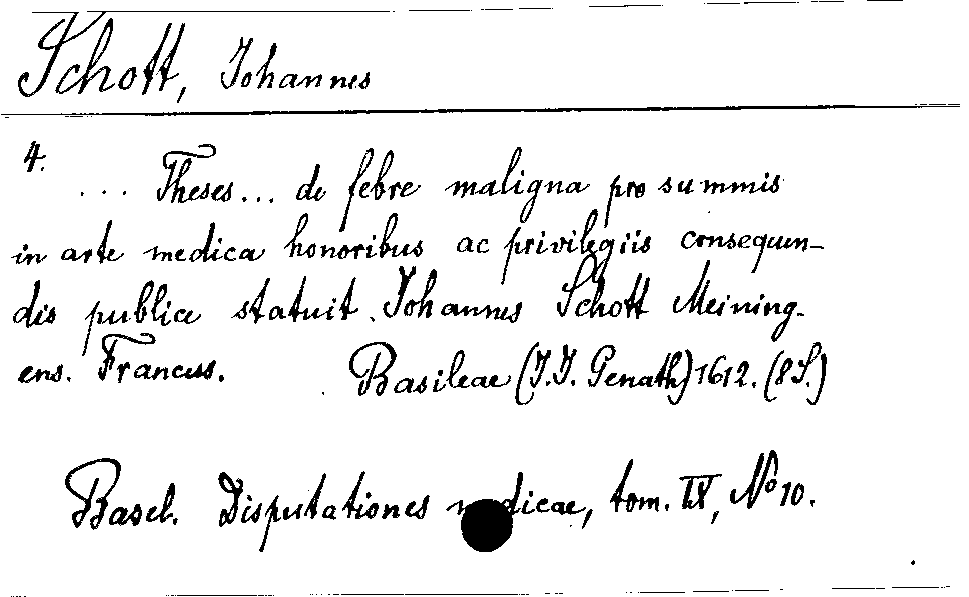 Schott, Johannes
4.
... Theses... de febre maligna pro summis
in arte medica honoribus ac privilegiis consequen-
dis publice statuit Johannes Schott Meining-
ens. Francus. Basileae (J.J. Genath) 1612. (8 S.)
Basel. Disputationes medicae, tom. IV, No 10.